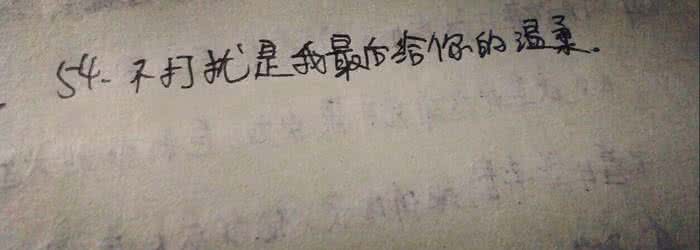 54. 不打扰是我最后给你的温柔.